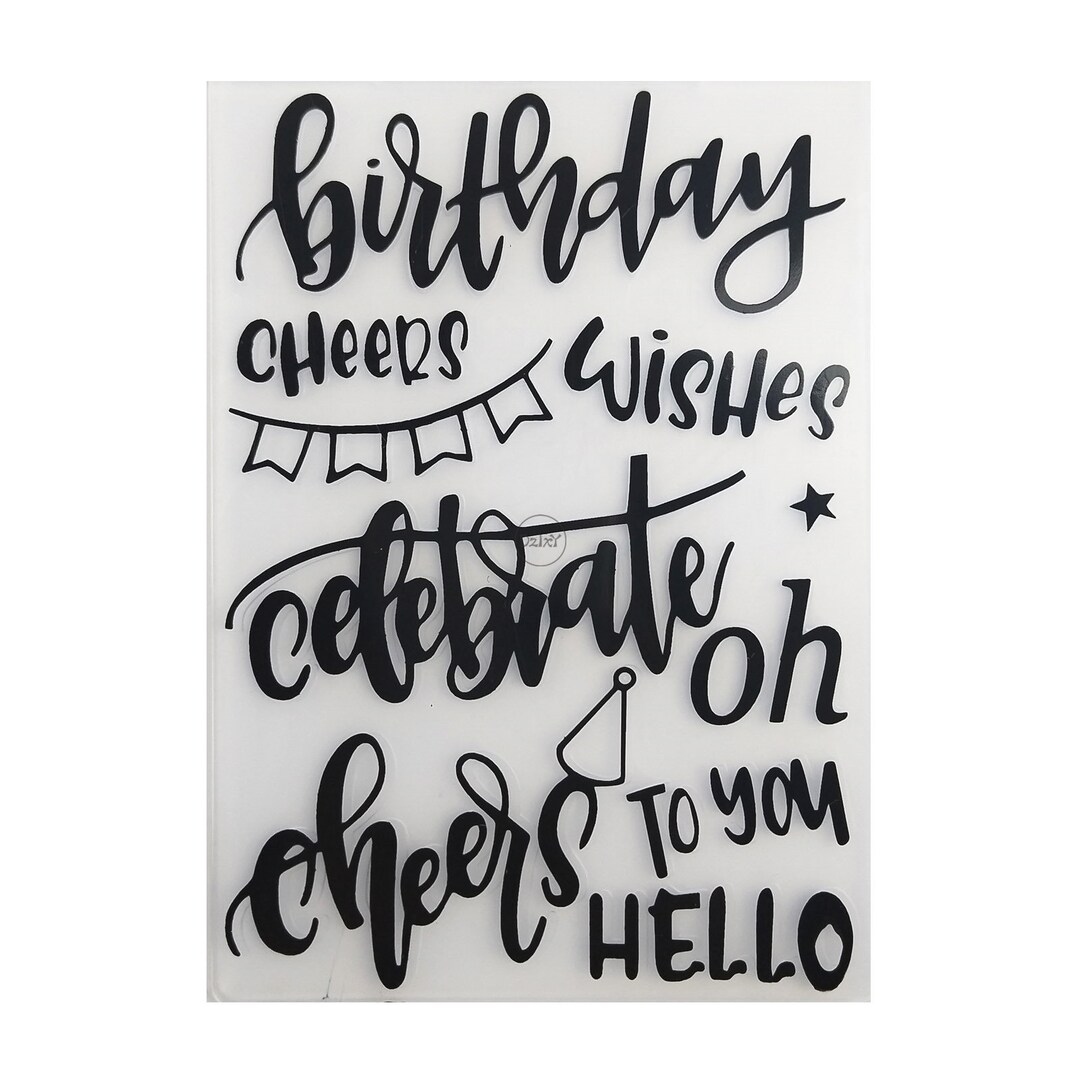 birthday
CHEERS
WISHES
celebrate
oh
cheers
TO YOU
HELLO